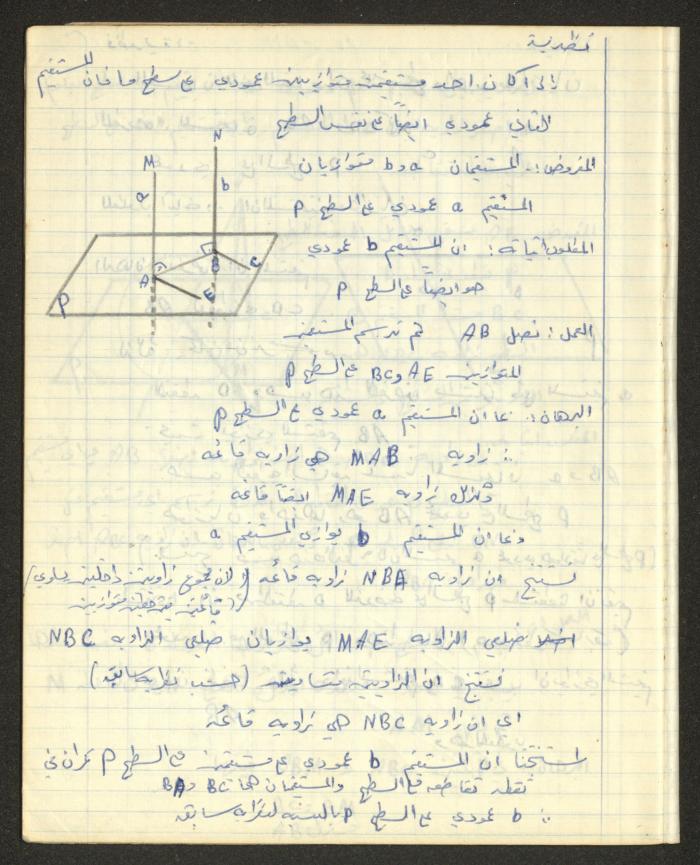 نظرية
إذا كان احد مستقيمين متوازيين عمودي على سطح ما فان المستقيم
الثاني عمودي ايضاً على نفس السطح
المفروض: المستقيمان a و b متوازيان
المستقيم a عمودي على السطح P
المطلوب اثباته: ان المستقيم b عمودي
هو ايضاً على السطح P
العمل: نصل AB ثم نرسم المستقيمين
المتوازيين AE و BC على السطح P
البرهان: بما ان المستقيم a عمودي على السطح P
∴ زاويه MAB هي زاويه قائمه
وكذلك زاويه MAE ايضاً قائمه
وبما ان المستقيم b يوازي المستقيم a
نستنتج ان زاويه NBA زاويه قائمه (لان مجموع زاويتين داخلتين يساوي
قائمتين
ضلعي الزاويه MAE يوازيان ضلعي الزاويه NBC
نستنتج ان الزاويتين متساويتين (حسب نظريه سابقه)
اي ان زاويه NBC هي زاويه قائمه
استنتجنا ان المستقيم b عمودي على مستقيمين على السطح P يمران في
نقطه تقاطعه مع السطح والمستقيمان هما BC و BA
∴ b عمودي على السطح P بالنسبه لنظريه سابقه
M
N
a
b
A
B
C
E
P